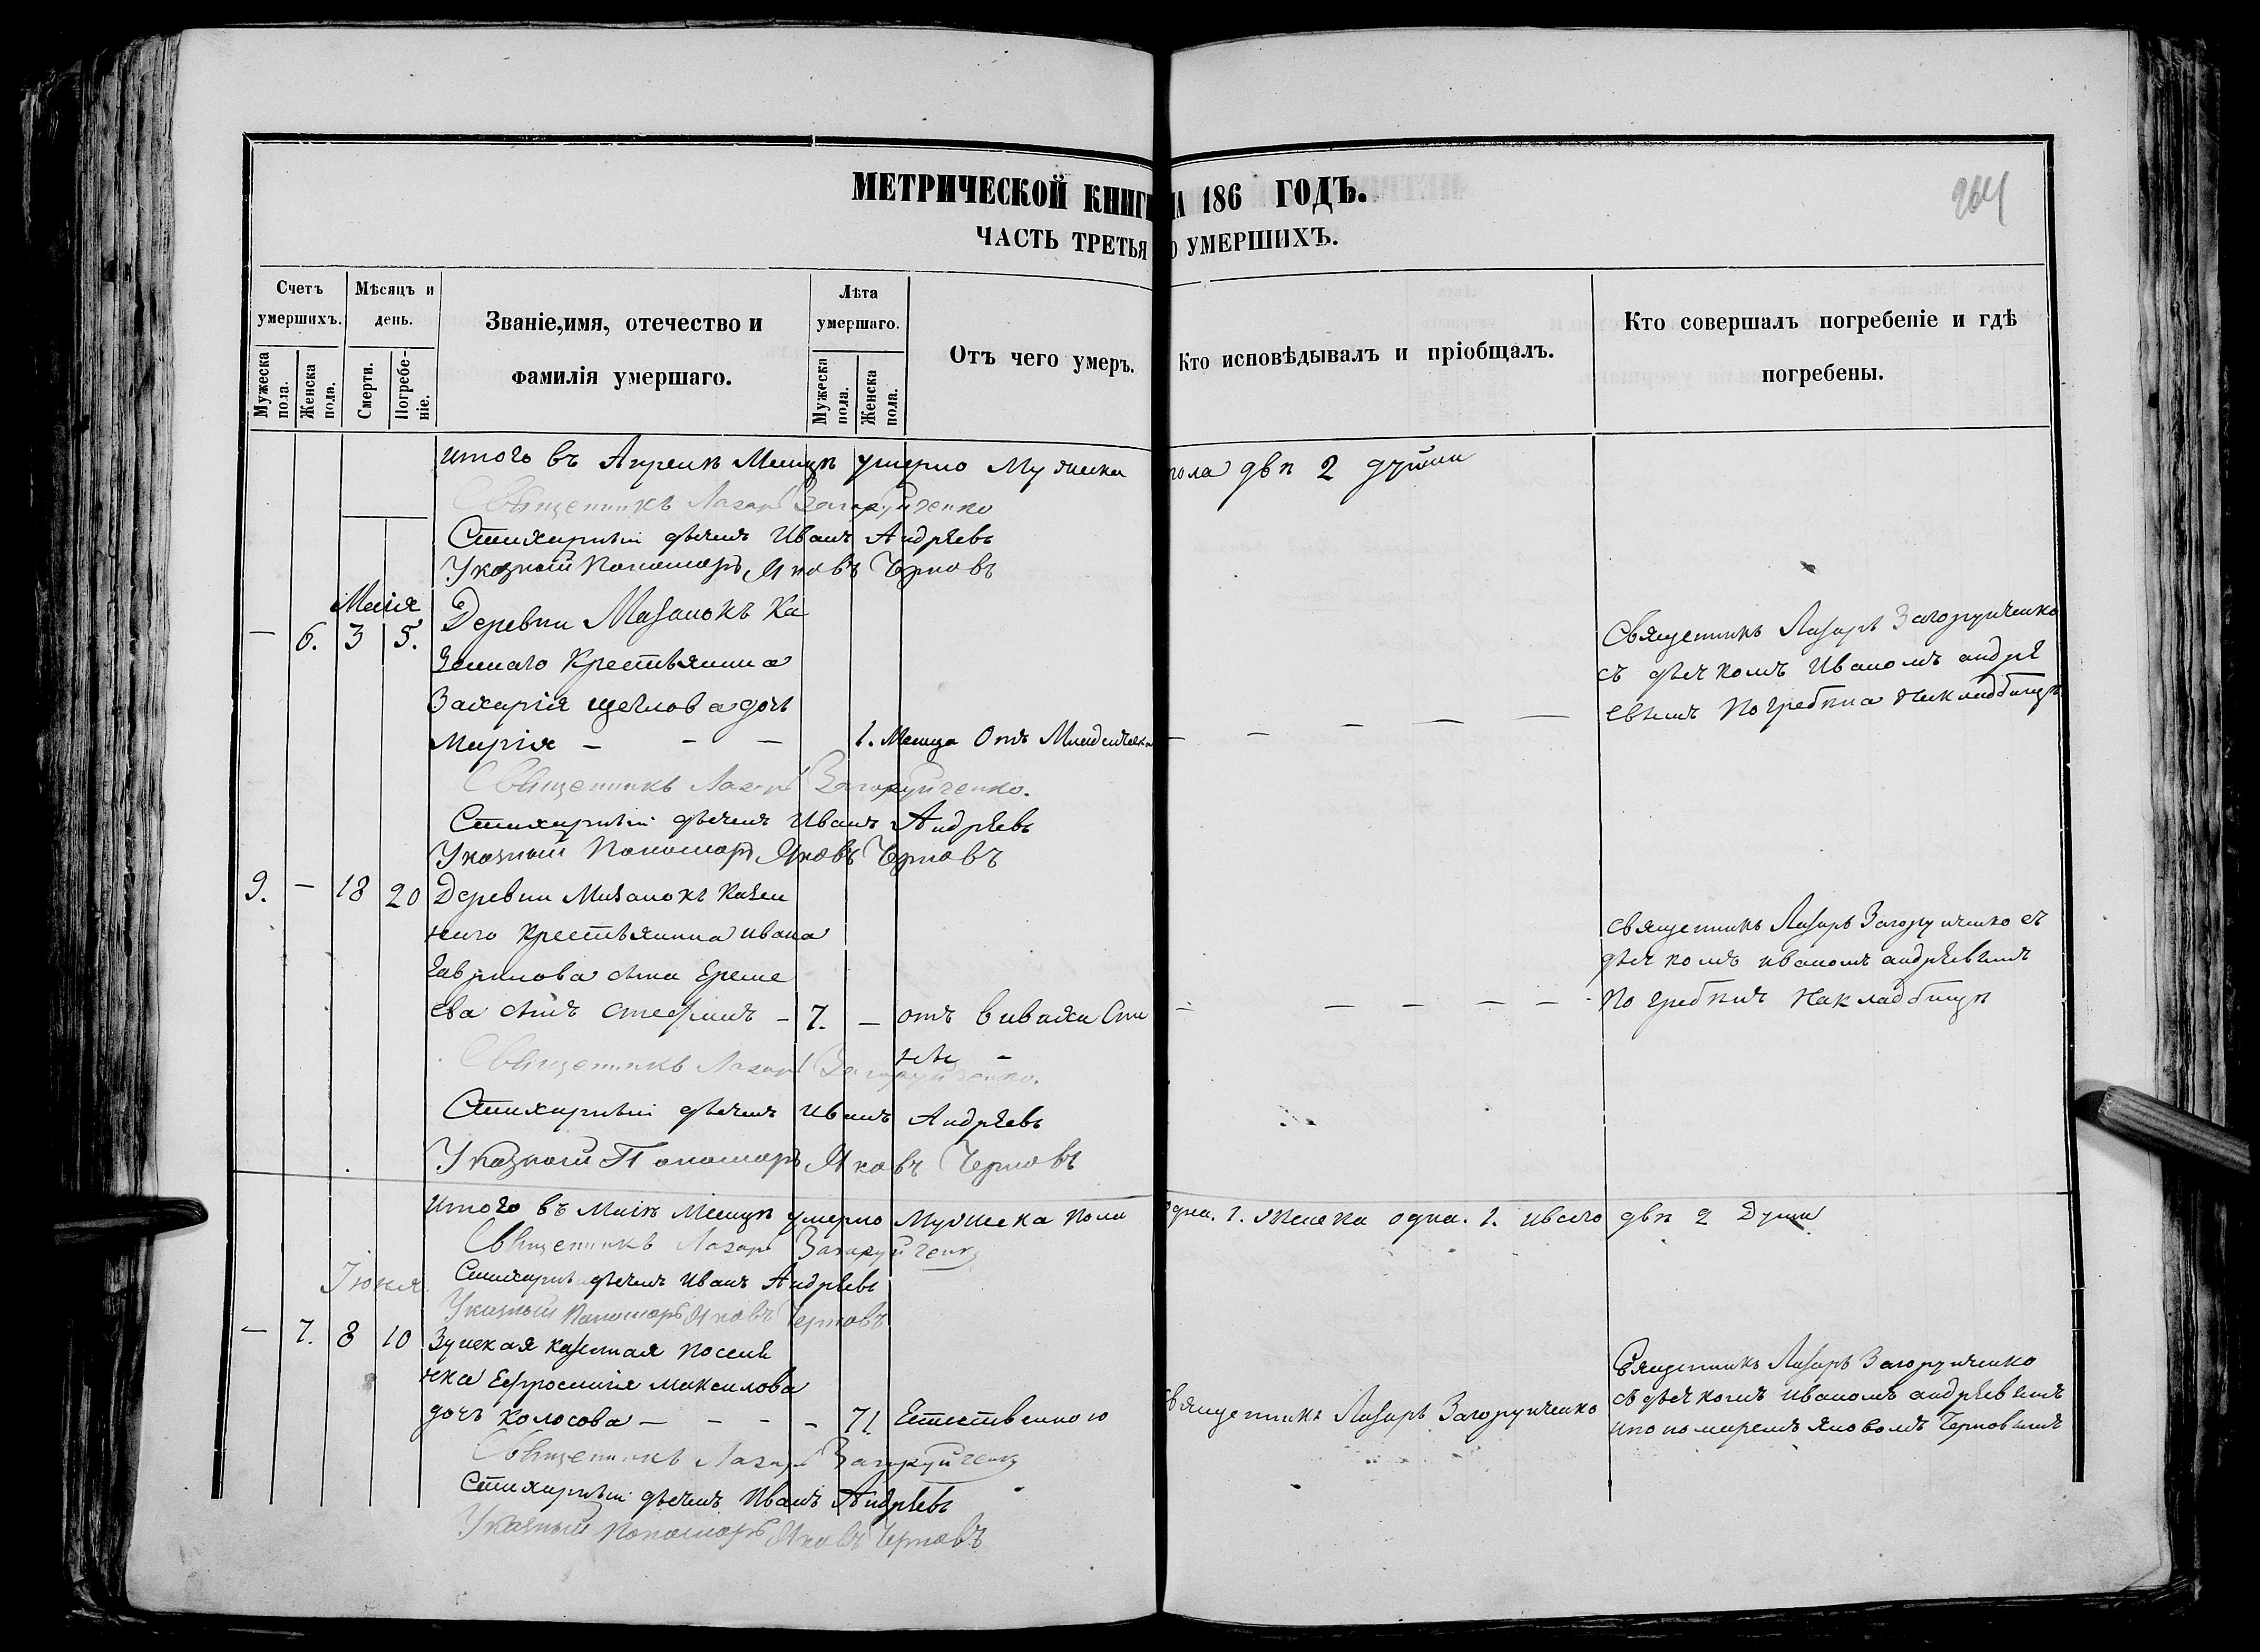 МЕТРИЧЕСКОЙ КНИГИ НА 186 ГОДЪ.
264
ЧАСТЬ ТРЕТЬЯ О УМЕРШИХЪ.
Счетъ умершихъ.
Мужеска пола.
Женска пола.
Мѣсяцъ и день.
Смерти.
Погребе-ніе.
Званіе, имя, отечество и фамилія умершаго.
Лѣта умершаго.
Мужеска пола.
Женска пола.
Отъ чего умеръ.
Кто исповѣдывалъ и пріобщалъ.
Кто совершалъ погребеніе и гдѣ погребены.
итого въ Апрелѣ Месицѣ умерло Мужеска пола двѣ 2 души
Священникъ Лазарь Загоруйченко
Стихарный дьячекъ Иванъ Андрѣевъ
Указный Пономарь Яковъ Черновъ
Маія
— 6. 3 5. Деревни Мазанокъ Ка
зеннаго Крестьянина
Захарія Щеглова дочь
Марія — — — 1. Месица Отъ Младенческа — — — — —
Священникъ Лазарь Загоруйченко
съ дьячкомъ Иваномъ андрѣ
евымъ Погребена на кладбищѣ
Священникъ Лазарь Загоруйченко.
Стихарный дьячекъ Иванъ Андрѣевъ
Указный Пономарь Яковъ Черновъ
9. — 18 20 Деревни Мазанокъ Казен
наго Крестьянина Ивана
Гаврилова сына Ереме
ева сынъ Стефанъ — 7. — отъ
— — — — —
Священникъ Лазарь Загоруйченко съ
дьячкомъ иваномъ андрѣевымъ
Погребенъ На кладбищѣ
Священникъ Лазарь Загоруйченко.
Стихарный дьячекъ Иванъ Андрѣевъ
Указной Пономарь Яковъ Черновъ
Итого въ Маіѣ Месицѣ умерло Мужеска пола одна. 1. женска одна. 1. ивсего двѣ 2 Души
Священникъ Лазарь Загоруйченко
Стихарный дьячекъ Иванъ Андрѣевъ
Іюня
Указный Пономарь Яковъ Черновъ
— 7. 8 10 Зуйская казенная поселя
нка Ефросинія Максимова
дочь Колосова — — — — 71. Естественною
Священникъ Лазарь Загоруйченко
Священникъ Лазарь Загоруйченко
съ дьячкомъ Иваномъ андрѣевымъ
ипономаремъ яковомъ Черновымъ
Священникъ Лазарь Загоруйченко
Стихарный дьячекъ Иванъ Андрѣевъ
Указный Пономарь Яковъ Черновъ